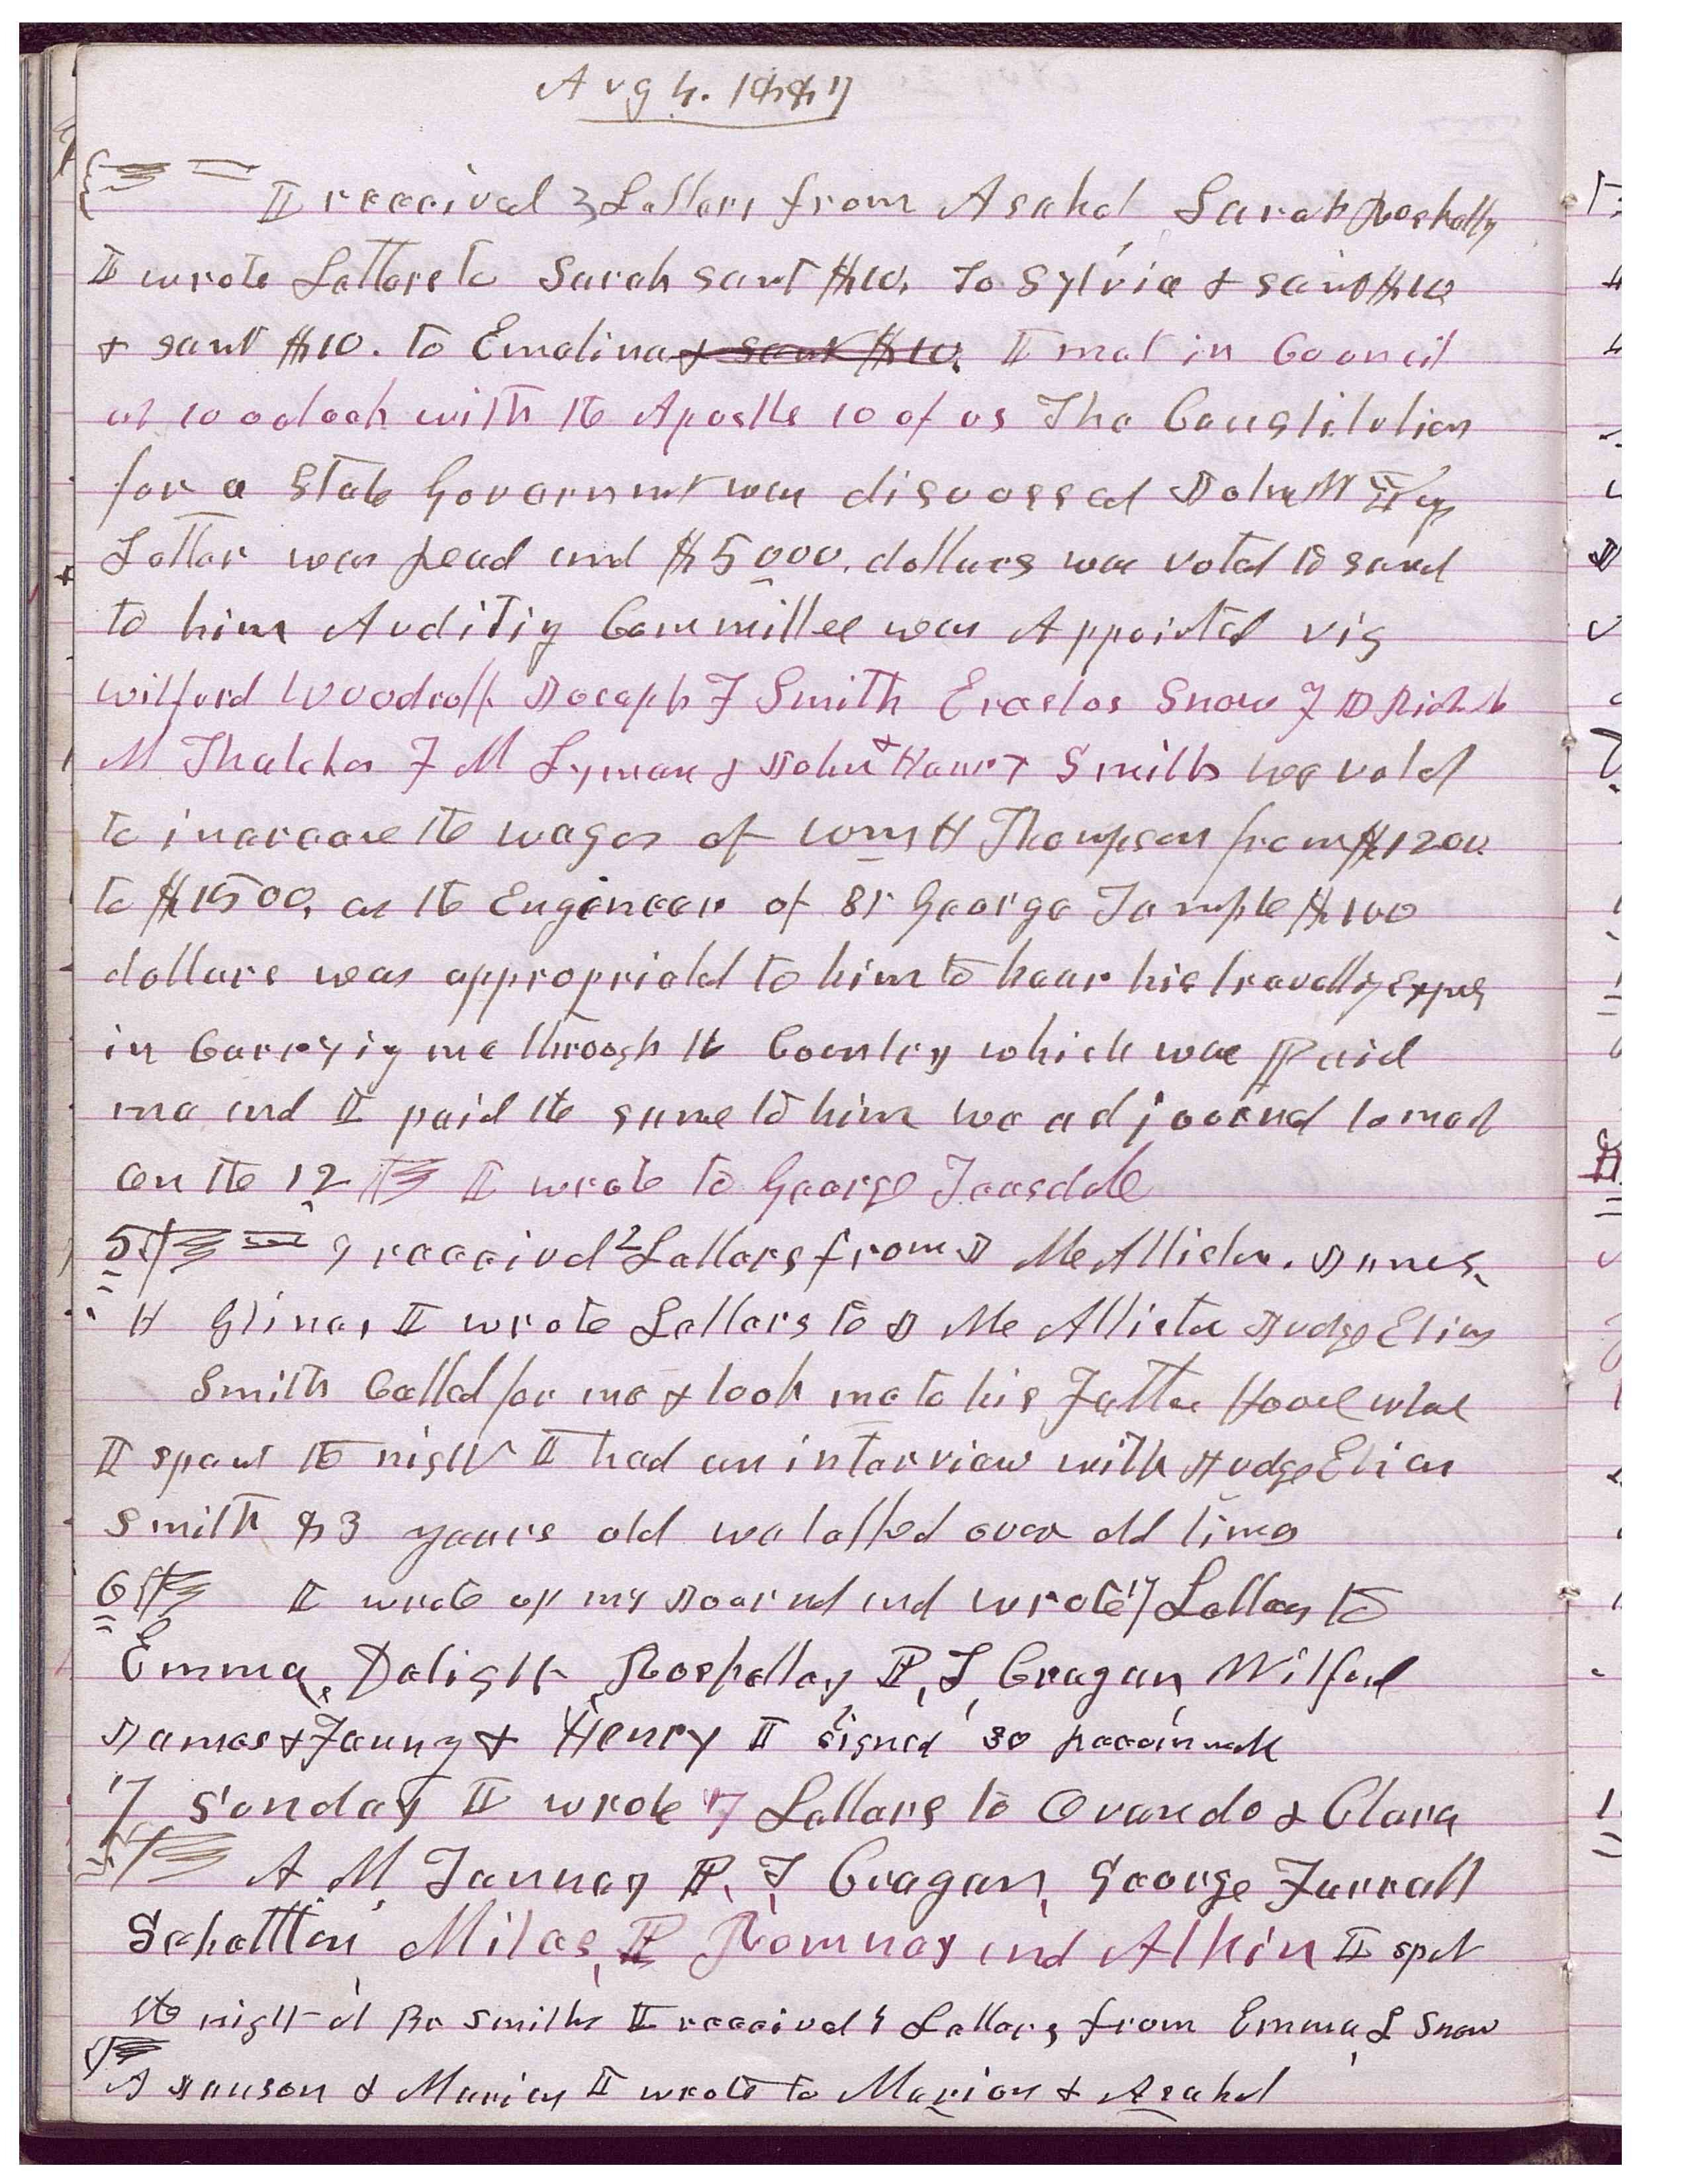 Aug 4. 1887
I received 3 Letters from Asahel Sarah Roskelly
I wrote Letters to Sarah sent $10, To Sylvia & send $10
& sent $10. to Emeline & sent $10. I met in Council
at 10 oclock with the Apostle 10 of us The Constitution
for a State Government was discussed John W
Letter was read and $5000. dollars was voted to send
to him Auditing Committee was Appointed viz
Wilford Woodruff Joseph F Smith Erastus Snow F D Richards
M Thatcher F M Lyman & John Henry Smith we voted
to increase the wages of Wm H Thompson from $1200.
to $1500, as the Engeneer of St George Temple $100
dollars was appropriated to him to bear his travelling expens
in Carrying me through the Country which was Paid
me and I paid the same to him we adjourned to meet
on the 12th I wrote to George Teasdale
5th I received 2 Letters from J McAllister. James
H I wrote Letters to J McAllister Judge Elias
Smith Called for me & took me to his Father House whare
I spent the night I had an interview with Judge Elias
Smith 83 years old we talked over old times
6th I wrote up my Journal and wrote 7 Letters to
Emma, Delight Roskelley P, L, Cragan, Wilford
James & Fanny & Henry I signed 30 recommends
7 Sunday I wrote 7 Letters to Ovando & Clara
A M Tenney P. T Cragan, George Farrall
Schettler, Miles, P Romney and Atkin I spet
the night at Br Smiths I received 4 Letters from Emma, L Snow
A Janson & Marion I wrote to Marion & Asahel